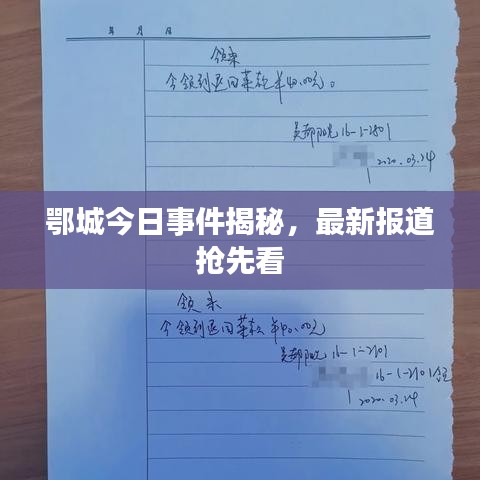 年 月 日
领条
今领到退回菜款¥40.00元。
吴都阳光16-1-2801
2020.03.24
鄂城今日事件揭秘，最新报道
抢先看
领条
今领到退回菜款¥40.00元
吴都阳光16-1-2101
16-1-2101住
2020.03.24